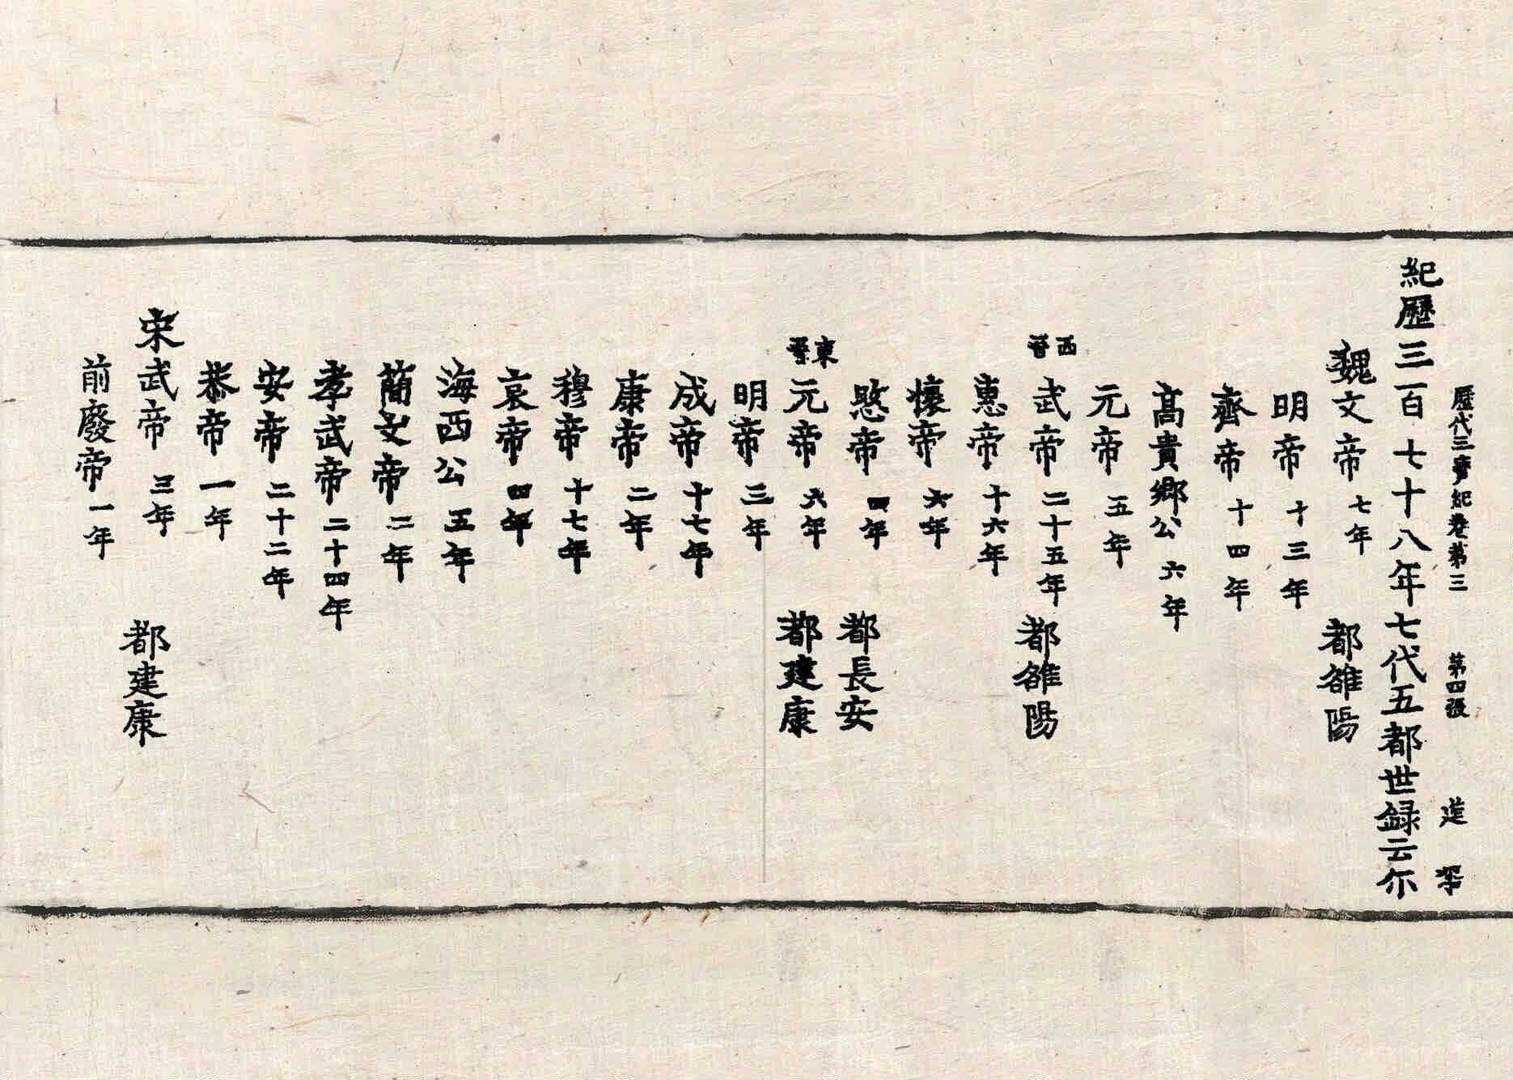 歷代三寶紀卷第三　第四張　達
紀歷三百七十八年七代五都世録云尒
魏文帝　七年　都雒陽
明帝　十三年
齊帝　十四年
髙貴鄉公　六年
元帝　五年
西晉
武帝　二十五年　都雒陽
惠帝　十六年
懷帝　六年
愍帝　四年　都長安
東晉
元帝　六年　都建康
明帝　三年
成帝　十七年
康帝　二年
穆帝　十七年
哀帝　四年
海西公　五年
蕳文帝　二年
孝武帝　二十四年
安帝　二十二年
恭帝　一年
宋武帝　三年　都建康
前廢帝　一年